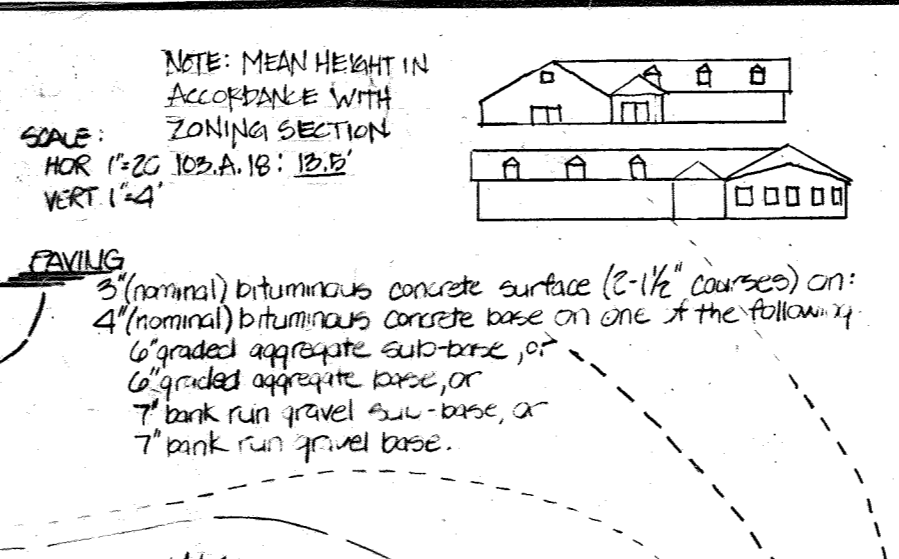 NOTE: MEAN HEIGHT IN
ACCORDANCE WITH
ZONING SECTION
103.A.18: 13.5'
SCALE:
HOR 1"=20
VERT 1"=4'
PAVING
3"(nominal) bituminous concrete surface (2-1½" courses) on:
4"(nominal) bituminous concrete base on one of the following
6"graded aggregate sub-base, or
6"graded aggregate base, or
7" bank run gravel sub-base, or
7" bank run gravel base.